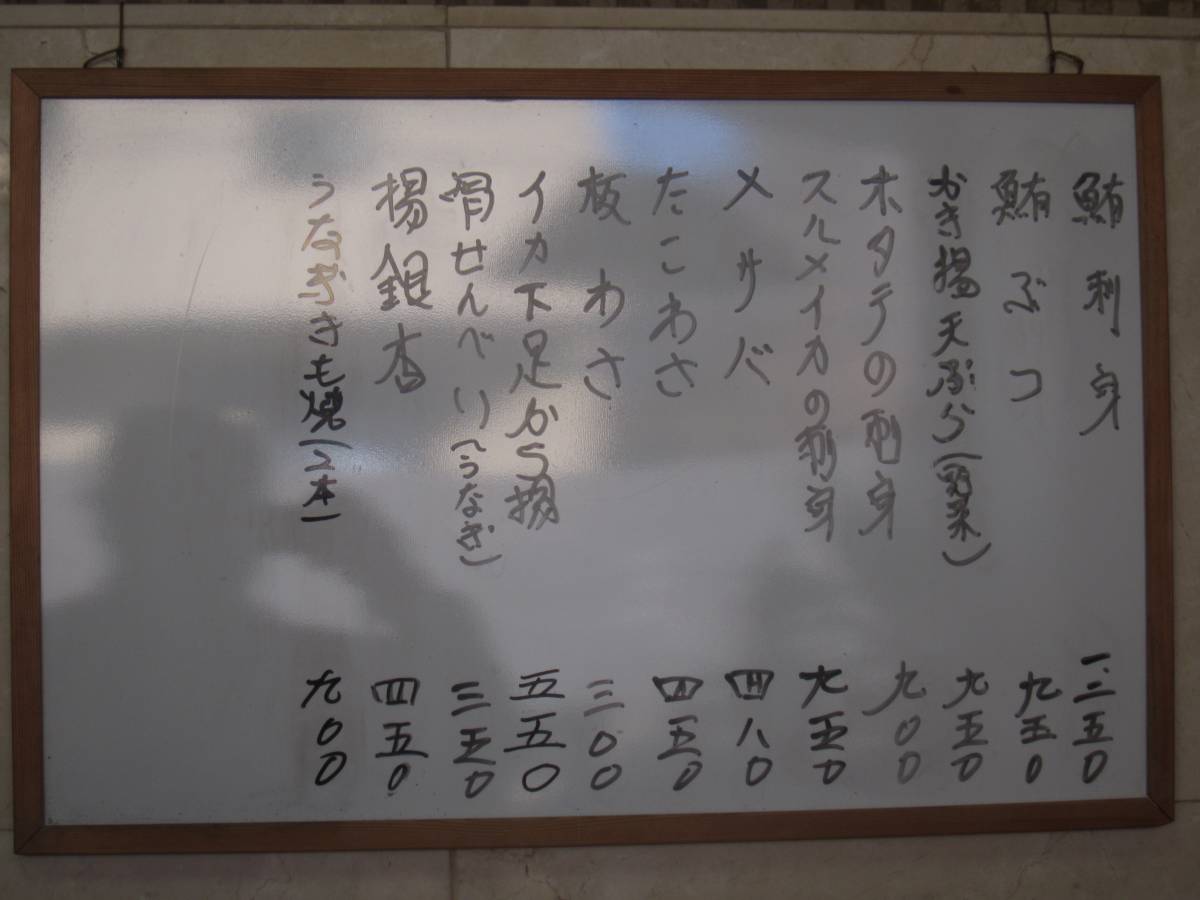 鮪刺身 一、三五〇
鮪ぶつ 九五〇
かき揚天ぷら(野菜) 九五〇
ホタテの刺身 九〇〇
スルメイカの刺身 九五〇
〆サバ 四八〇
たこわさ 四五〇
板わさ 三〇〇
イカ下足から揚 五五〇
骨せんべい(うなぎ) 三五〇
揚銀杏 四五〇
うなぎきも焼(2本) 九〇〇